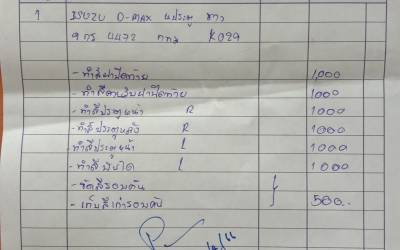 1 ISUZU D-MAX 4ประตู ขาว
9 กร 4472 กทม K029
- ทำสีฝาปิดท้าย 1,000
- ทำสี ฝาปิดท้าย 1000
- ทำสีประตูหน้า R 1000
- ทำสีประตูหลัง R 1000
- ทำสีประตูหน้า L 1000
- ทำสีบันได L 1000
- ขัดสีรอบคัน
- เก็บสีเก่ารอบคัน 500.-